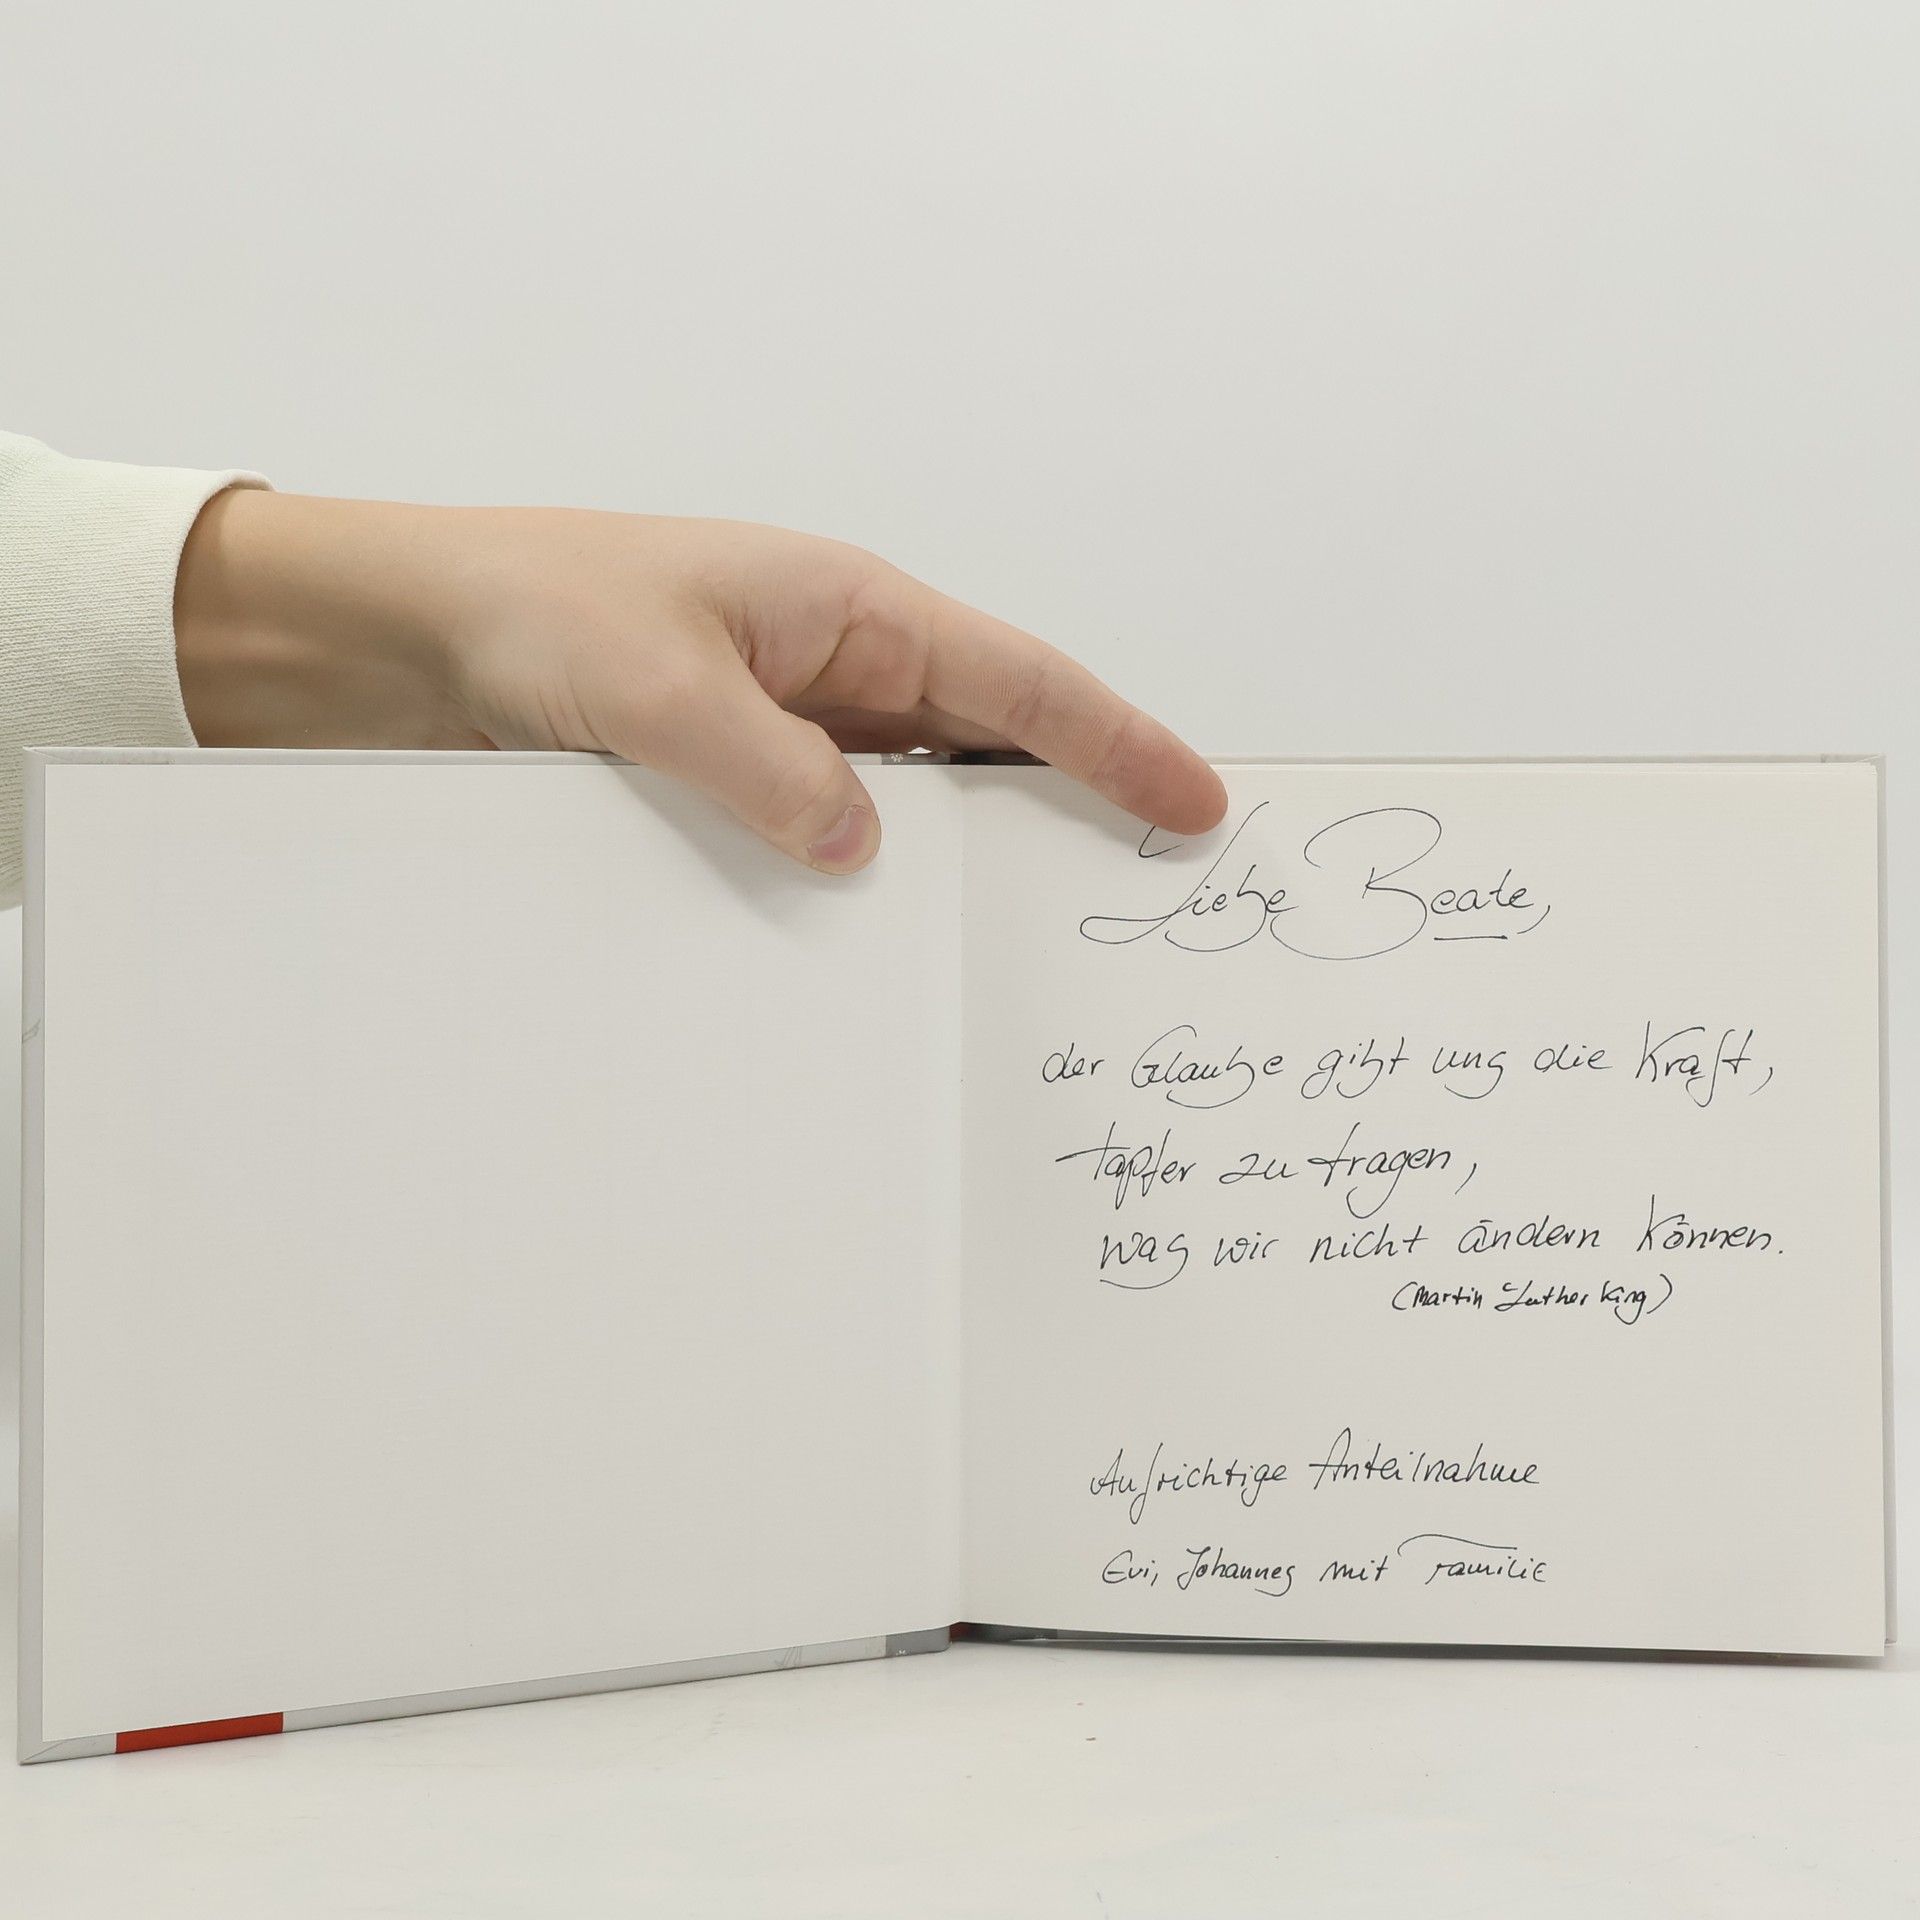 Liebe Beate,
der Glaube gibt uns die Kraft,
tapfer zu tragen,
was wir nicht ändern können.
(Martin Luther King)
Aufrichtige Anteilnahme
Evi, Johannes mit Familie